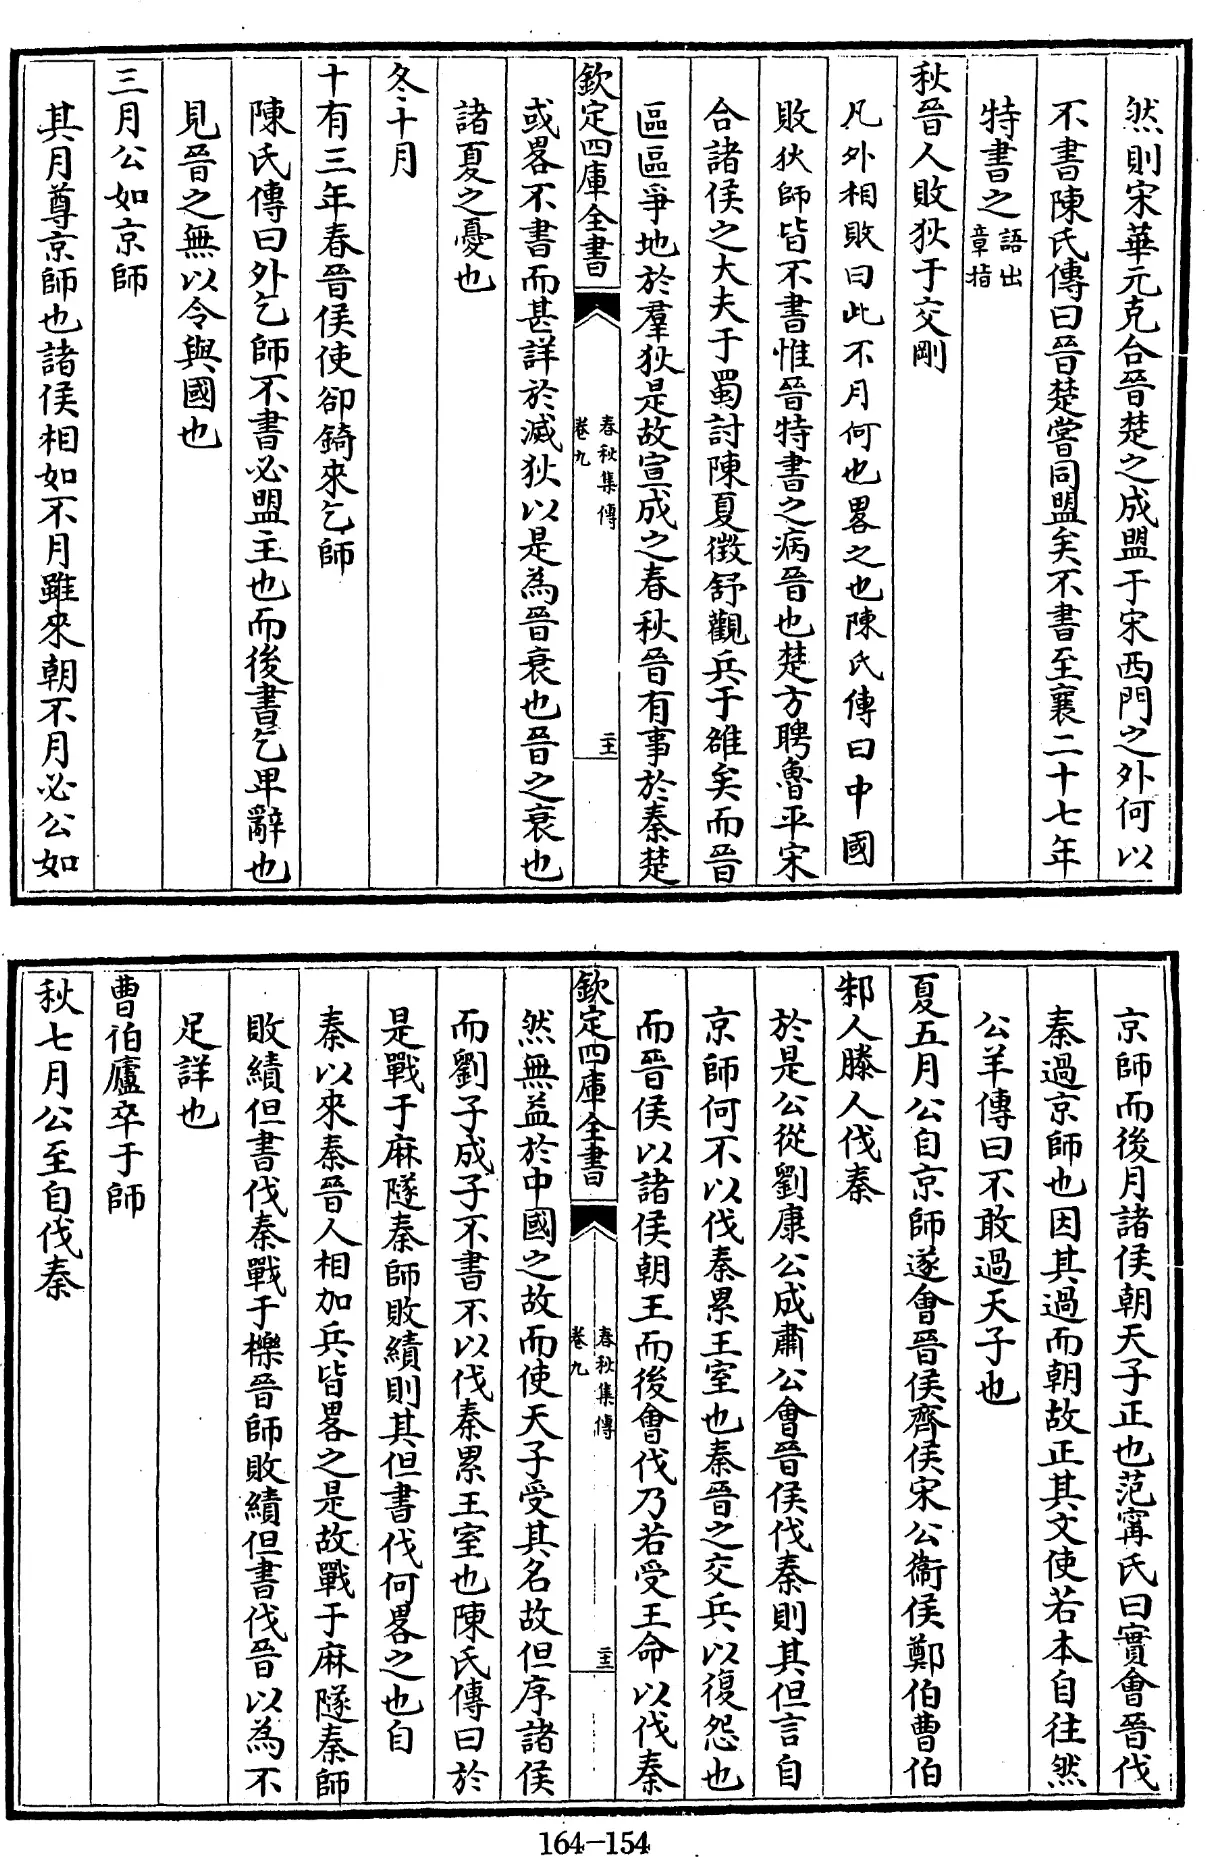 然則宋華元克合晉楚之成盟于宋西門之外何以
不書陳氏傳曰晉楚嘗同盟矣不書至襄二十七年
特書之語出章指
秋晉人敗狄于交剛
凡外相敗曰此不月何也畧之也陳氏傳曰中國
敗狄師皆不書惟晉特書之病晉也楚方聘魯平宋
合諸侯之大夫于蜀討陳夏徴舒觀兵于雒矣而晉
區區爭地於羣狄是故宣成之春秋晉有事於秦楚
欽定四庫全書
春秋集傳
卷九
或畧不書而甚詳於滅狄以是為晉衰也晉之衰也
諸夏之憂也
冬十月
十有三年春晉侯使郤錡來乞師
陳氏傳曰外乞師不書必盟主也而後書乞卑辭也
見晉之無以令與國也
三月公如京師
其月尊京師也諸侯相如不月雖來朝不月必公如
京師而後月諸侯朝天子正也范寗氏曰實會晉伐
秦過京師也因其過而朝故正其文使若本自往然
公羊傳曰不敢過天子也
夏五月公自京師遂會晉侯齊侯宋公衞侯鄭伯曹伯
邾人滕人伐秦
於是公從劉康公成肅公會晉侯伐秦則其但言自
京師何不以伐秦累王室也秦晉之交兵以復怨也
而晉侯以諸侯朝王而後會伐乃若受王命以伐秦
欽定四庫全書
春秋集傳
卷九
然無益於中國之故而使天子受其名故但序諸侯
而劉子成子不書不以伐秦累王室也陳氏傳曰於
是戰于麻隧秦師敗績則其但書伐何畧之也自
秦以來秦晉人相加兵皆畧之是故戰于麻隧秦師
敗績但書伐秦戰于櫟晉師敗績但書伐晉以為不
足詳也
曹伯廬卒于師
秋七月公至自伐秦
164-154